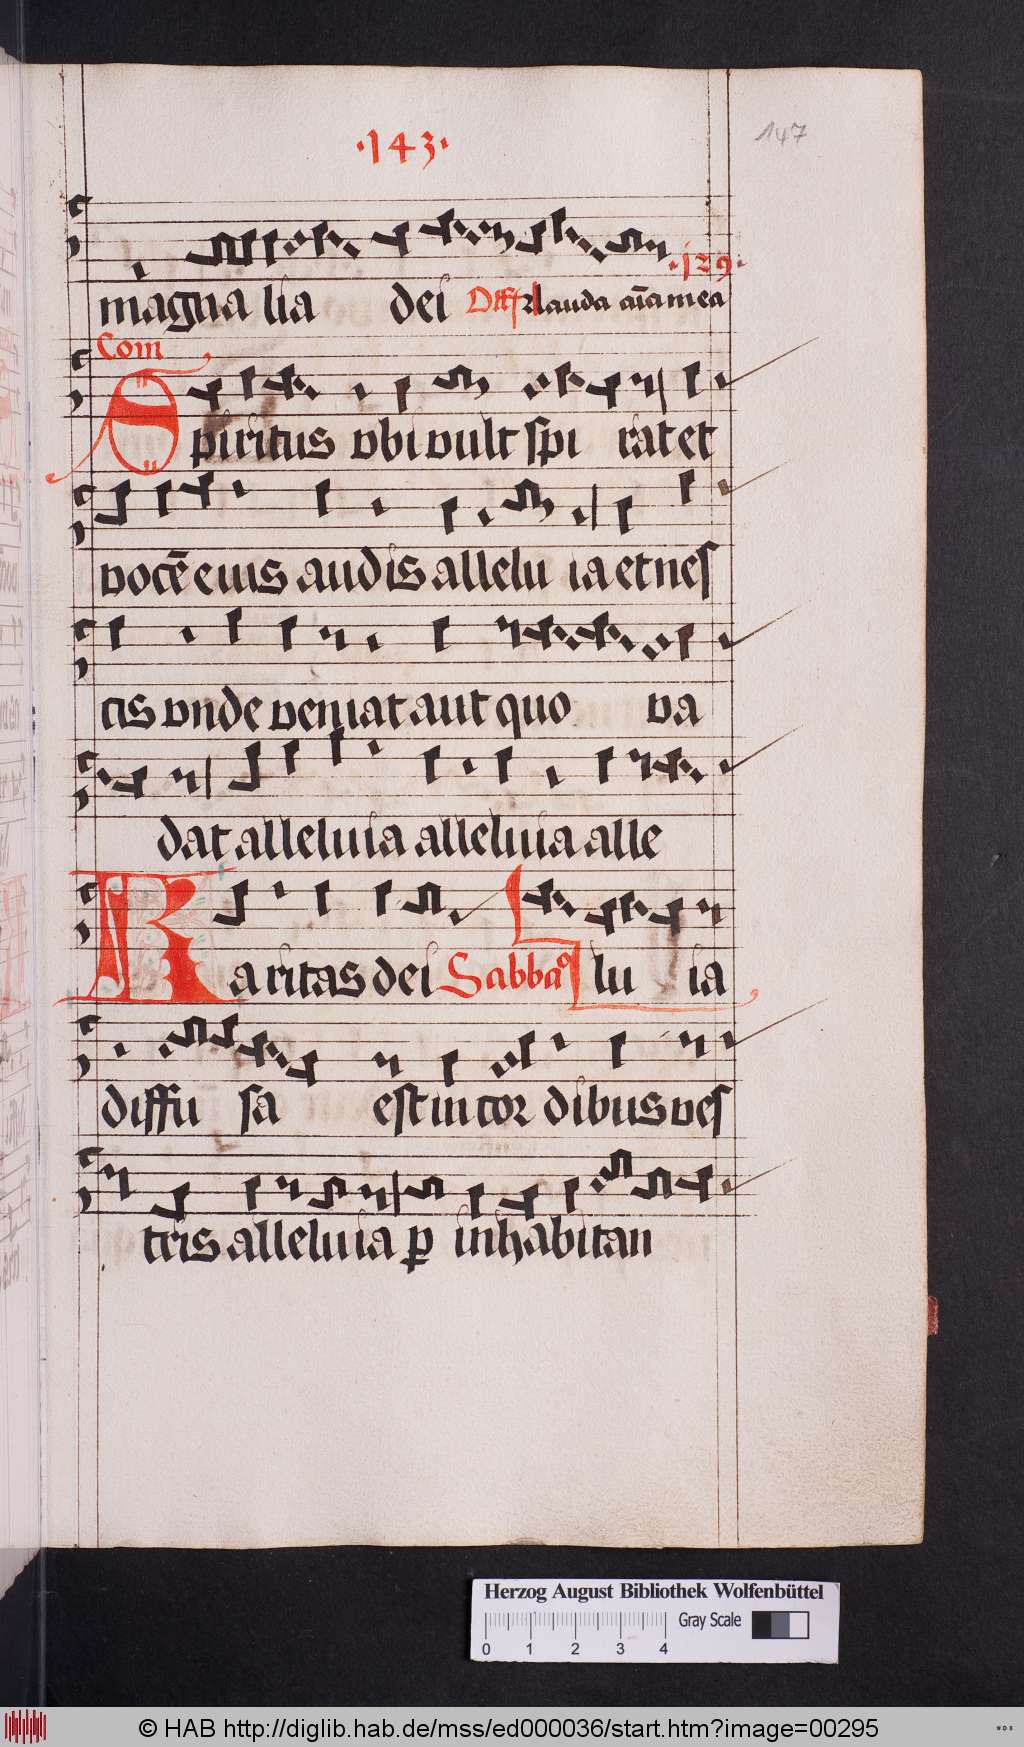 ·143·
147
magna lia dei Off lauda aīa mea ·129·
Com
Spiritus vbi vult spi rat et
vocē eius audis allelu ia et nes
cis vnde veniat aut quo va
dat alleluia alleluia alle
Karitas dei Sabbāo lu ia
diffu sa est in cor dibus ves
tris alleluia ꝑ inhabitan
Herzog August Bibliothek Wolfenbüttel
0 1 2 3 4 Gray Scale
© HAB http://diglib.hab.de/mss/ed000036/start.htm?image=00295